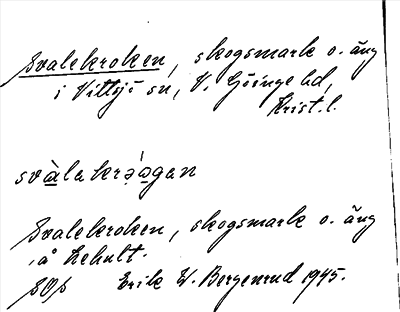 Svalekroken, skogsmark o. äng
i Vittsjö sn, V. Göinge hd,
Krist. l.
svàlakrə́ǫgan
Svalekroken, skogsmark o. äng
å Lehult.
SOp Erik W. Bergenrud 1945.